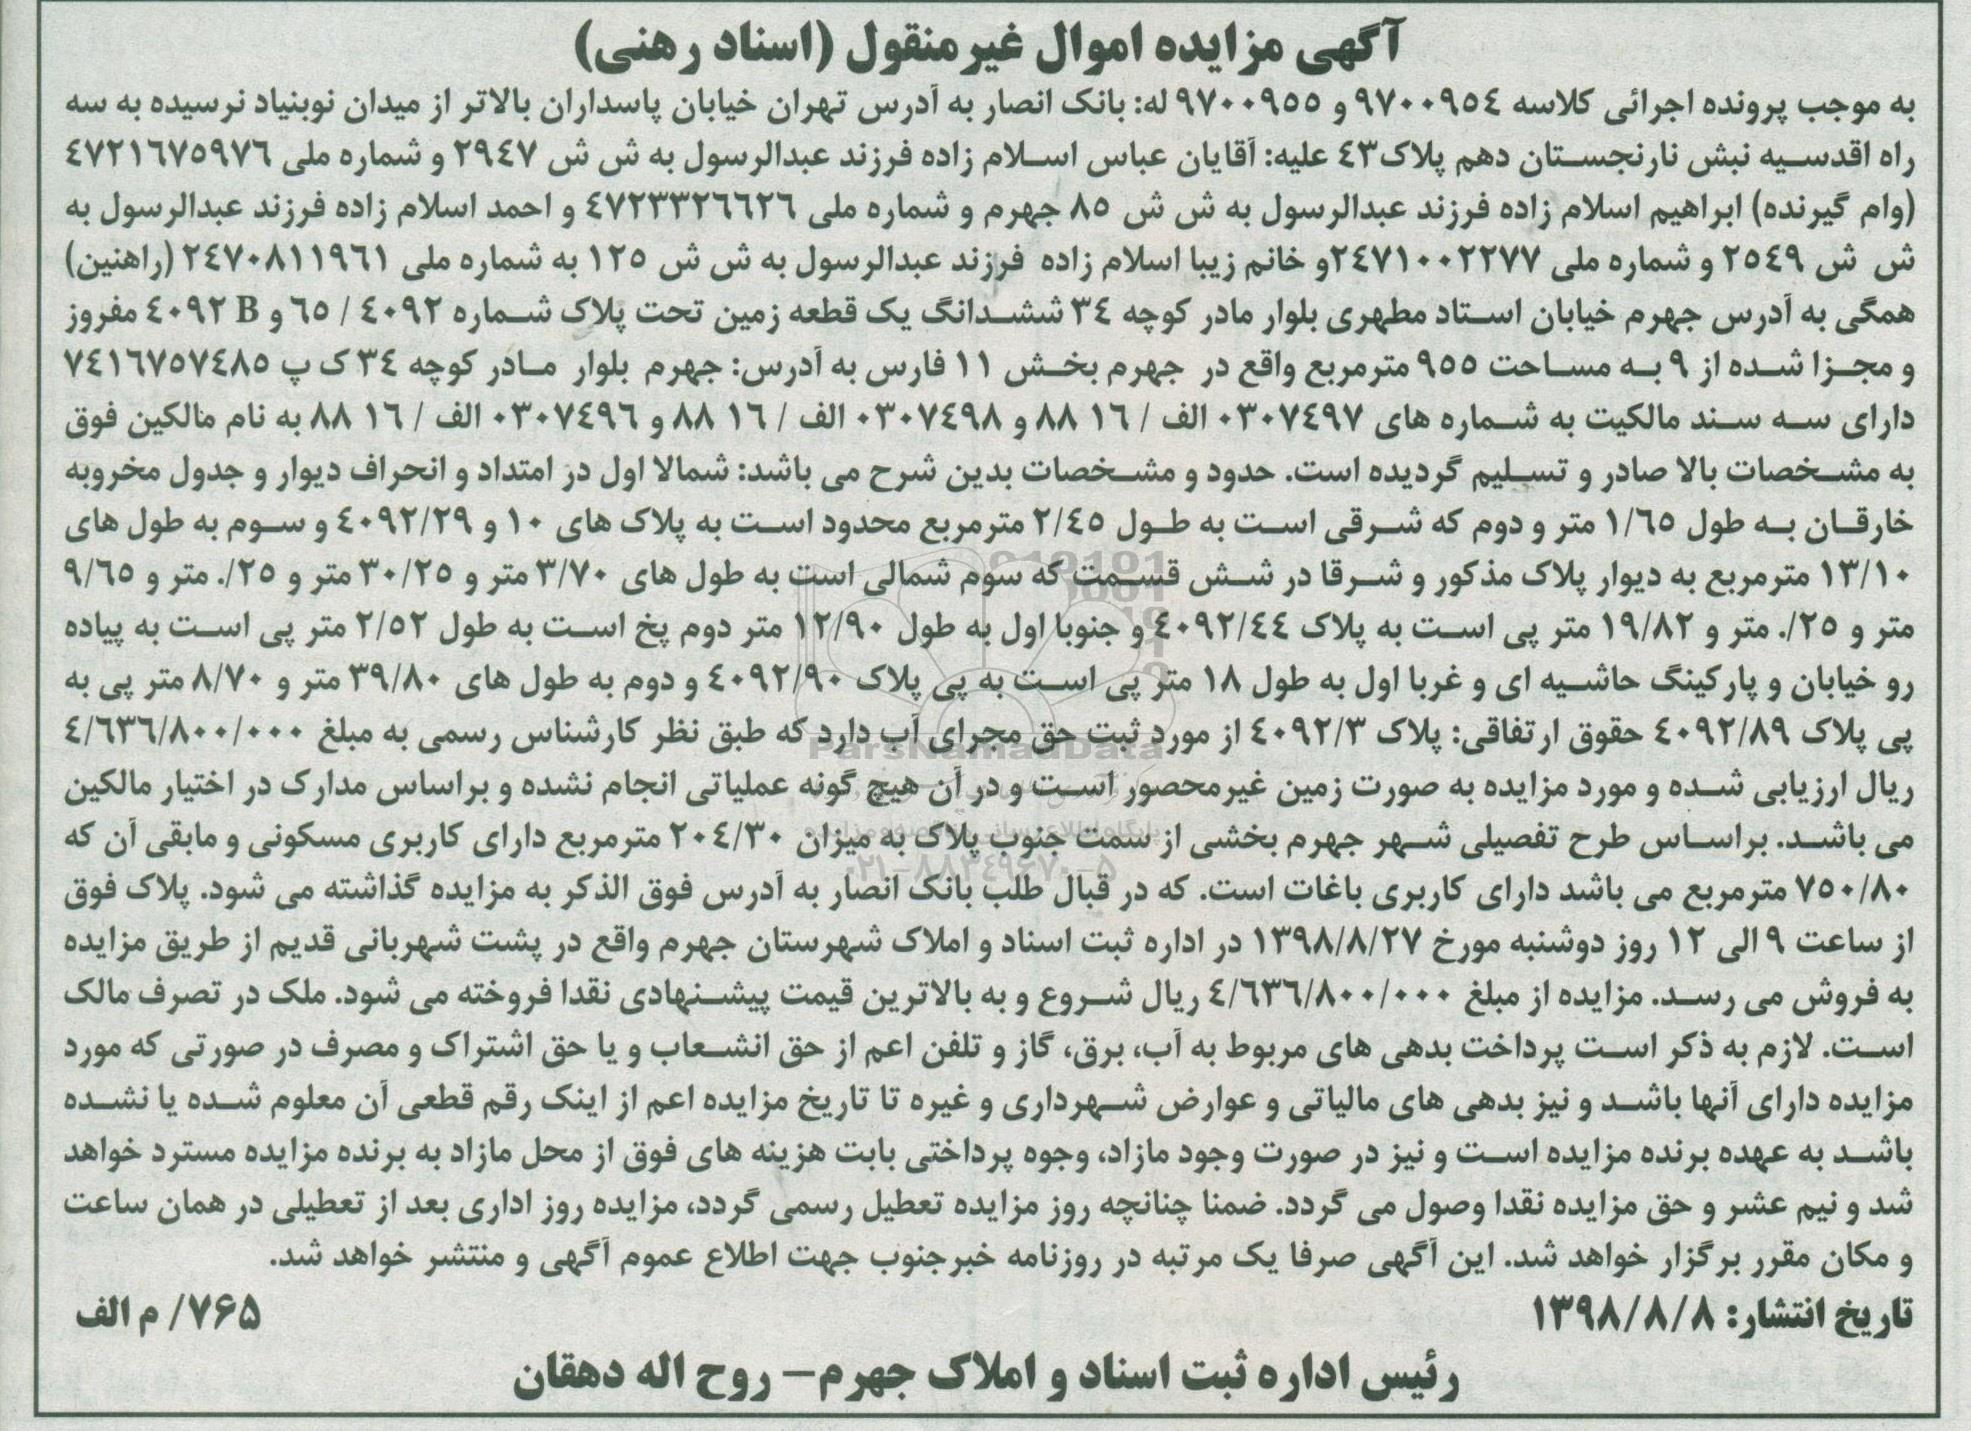 آگهی مزایده اموال غیرمنقول (اسناد رهنی)
به موجب پرونده اجرائی کلاسه ۹۷۰۰۹۵٤ و ۹۷۰۰۹۵۵ له: بانک انصار به آدرس تهران خیابان پاسداران بالاتر از میدان نوبنیاد نرسیده به سه
راه اقدسیه نبش نارنجستان دهم پلاک٤۳ علیه: آقایان عباس اسلام زاده فرزند عبدالرسول به ش ش ۲۹٤۷ و شماره ملی ٤۷۲۱٦۷۵۹۷٦
(وام گیرنده) ابراهیم اسلام زاده فرزند عبدالرسول به ش ش ۸۵ جهرم و شماره ملی ٤۷۲۳۳۲٦٦۲٦ و احمد اسلام زاده فرزند عبدالرسول به
ش ش ۲۵٤۹ و شماره ملی ۲٤۷۱۰۰۲۲۷۷و خانم زیبا اسلام زاده فرزند عبدالرسول به ش ش ۱۲۵ به شماره ملی ۲٤۷۰۸۱۱۹٦۱ (راهنین)
همگی به آدرس جهرم خیابان استاد مطهری بلوار مادر کوچه ۳٤ ششدانگ یک قطعه زمین تحت پلاک شماره ٤۰۹۲ / ٦۵ و B ٤۰۹۲ مفروز
و مجزا شده از ۹ به مساحت ۹۵۵ مترمربع واقع در جهرم بخش ۱۱ فارس به آدرس: جهرم بلوار مادر کوچه ۳٤ ک پ ۷٤۱٦۷۵۷٤۸۵
دارای سه سند مالکیت به شماره های ۰۳۰۷٤۹۷ الف / ۱٦ ۸۸ و ۰۳۰۷٤۹۸ الف / ۱٦ ۸۸ و ۰۳۰۷٤۹٦ الف / ۱٦ ۸۸ به نام مالکین فوق
به مشخصات بالا صادر و تسلیم گردیده است. حدود و مشخصات بدین شرح می باشد: شمالا اول در امتداد و انحراف دیوار و جدول مخروبه
خارقان به طول ۱/٦۵ متر و دوم که شرقی است به طول ۲/٤۵ مترمربع محدود است به پلاک های ۱۰ و ٤۰۹۲/۲۹ و سوم به طول های
۱۳/۱۰ مترمربع به دیوار پلاک مذکور و شرقا در شش قسمت که سوم شمالی است به طول های ۳/۷۰ متر و ۳۰/۲۵ متر و ۲۵/. متر و ۹/٦۵
متر و ۲۵/. متر و ۱۹/۸۲ متر پی است به پلاک ٤۰۹۲/٤٤ و جنوبا اول به طول ۱۲/۹۰ متر دوم پخ است به طول ۲/۵۲ متر پی است به پیاده
رو خیابان و پارکینگ حاشیه ای و غربا اول به طول ۱۸ متر پی است به پی پلاک ٤۰۹۲/۹۰ و دوم به طول های ۳۹/۸۰ متر و ۸/۷۰ متر پی به
پی پلاک ٤۰۹۲/۸۹ حقوق ارتفاقی: پلاک ٤۰۹۲/۳ از مورد ثبت حق مجرای آب دارد که طبق نظر کارشناس رسمی به مبلغ ٤/٦۳٦/۸۰۰/۰۰۰
ریال ارزیابی شده و مورد مزایده به صورت زمین غیرمحصور است و در آن هیچ گونه عملیاتی انجام نشده و براساس مدارک در اختیار مالکین
می باشد. براساس طرح تفصیلی شهر جهرم بخشی از سمت جنوب پلاک به میزان ۲۰٤/۳۰ مترمربع دارای کاربری مسکونی و مابقی آن که
۷۵۰/۸۰ مترمربع می باشد دارای کاربری باغات است. که در قبال طلب بانک انصار به آدرس فوق الذکر به مزایده گذاشته می شود. پلاک فوق
از ساعت ۹ الی ۱۲ روز دوشنبه مورخ ۱۳۹۸/۸/۲۷ در اداره ثبت اسناد و املاک شهرستان جهرم واقع در پشت شهربانی قدیم از طریق مزایده
به فروش می رسد. مزایده از مبلغ ٤/٦۳٦/۸۰۰/۰۰۰ ریال شروع و به بالاترین قیمت پیشنهادی نقدا فروخته می شود. ملک در تصرف مالک
است. لازم به ذکر است پرداخت بدهی های مربوط به آب، برق، گاز و تلفن اعم از حق انشعاب و یا حق اشتراک و مصرف در صورتی که مورد
مزایده دارای آنها باشد و نیز بدهی های مالیاتی و عوارض شهرداری و غیره تا تاریخ مزایده اعم از اینک رقم قطعی آن معلوم شده یا نشده
باشد به عهده برنده مزایده است و نیز در صورت وجود مازاد، وجوه پرداختی بابت هزینه های فوق از محل مازاد به برنده مزایده مسترد خواهد
شد و نیم عشر و حق مزایده نقدا وصول می گردد. ضمنا چنانچه روز مزایده تعطیل رسمی گردد، مزایده روز اداری بعد از تعطیلی در همان ساعت
و مکان مقرر برگزار خواهد شد. این آگهی صرفا یک مرتبه در روزنامه خبرجنوب جهت اطلاع عموم آگهی و منتشر خواهد شد.
تاریخ انتشار: ۱۳۹۸/۸/۸
۷۶۵/ م الف
رئیس اداره ثبت اسناد و املاک جهرم– روح اله دهقان
ParsNamadData
۰۲۱-۸۸۳٤۹٦۷۰-۵